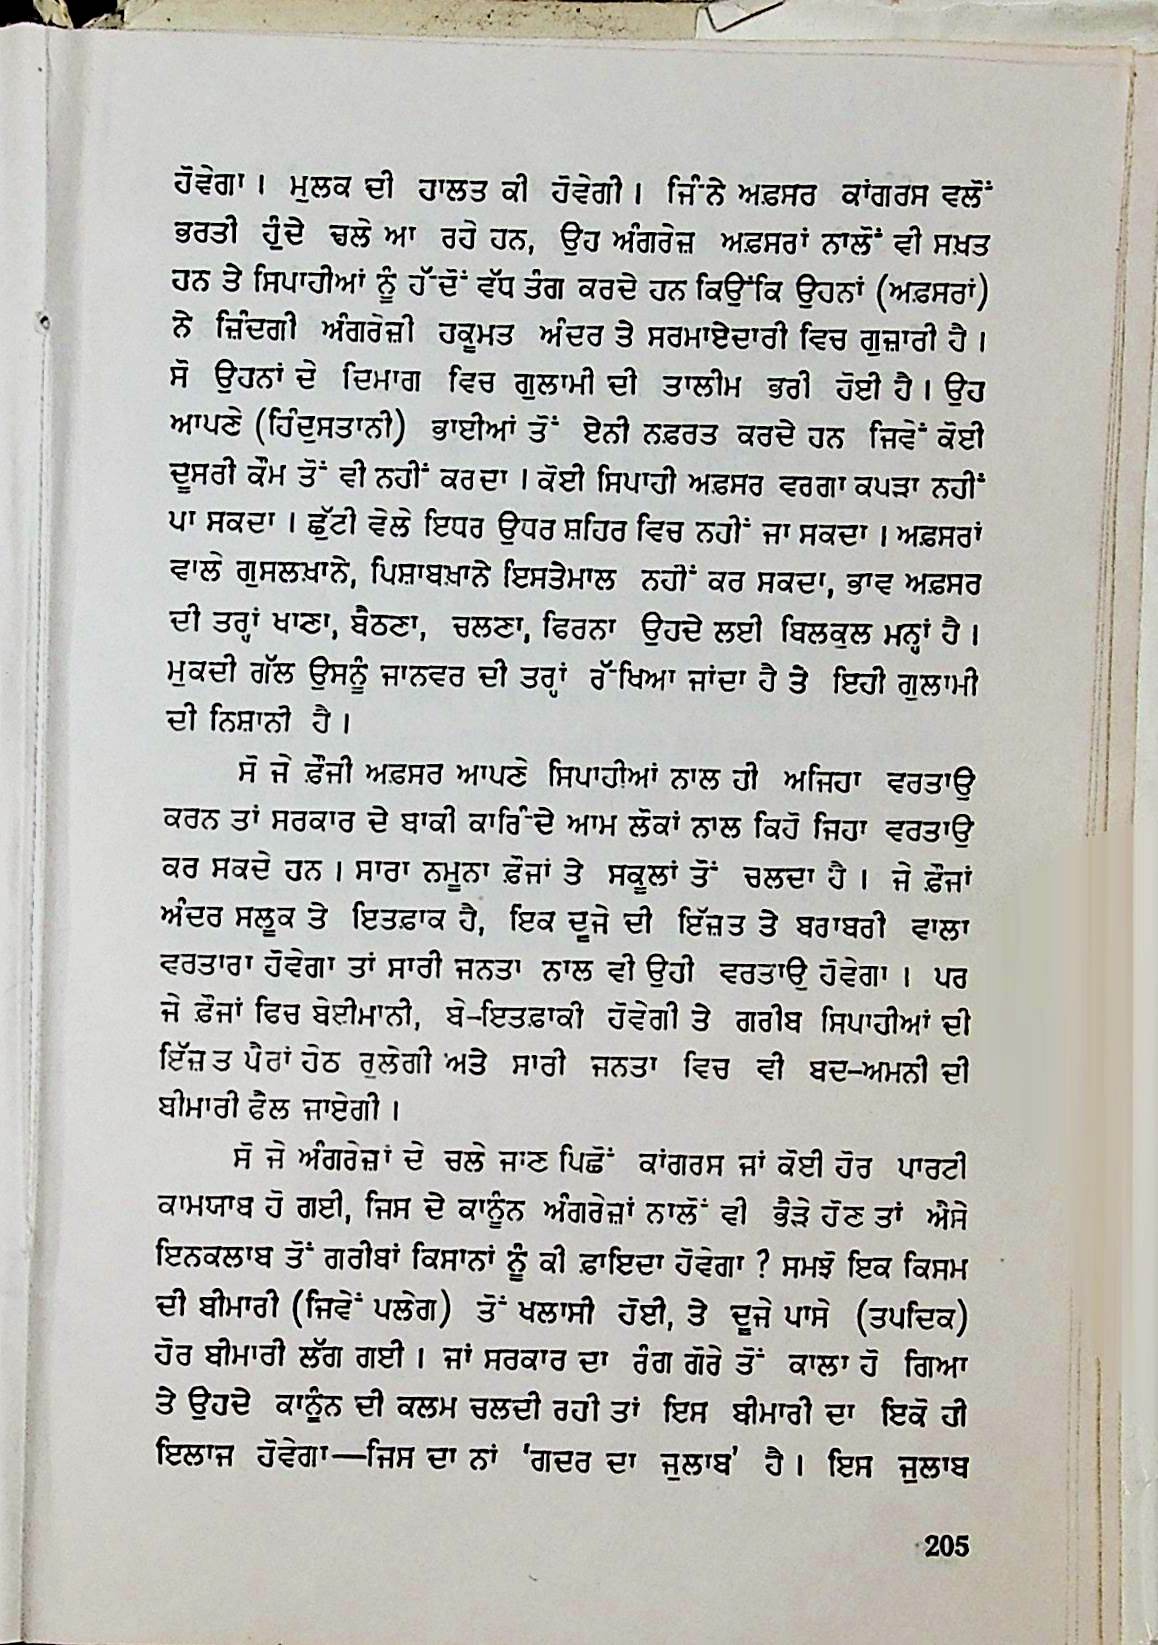 ਹੋਵੇਗਾ। ਮੁਲਕ ਦੀ ਹਾਲਤ ਕੀ ਹੋਵੇਗੀ। ਜਿੰਨੇ ਅਫ਼ਸਰ ਕਾਂਗਰਸ ਵਲੋਂ
ਭਰਤੀ ਹੁੰਦੇ ਚਲੇ ਆ ਰਹੇ ਹਨ, ਉਹ ਅੰਗਰੇਜ਼ ਅਫ਼ਸਰਾਂ ਨਾਲੋਂ ਵੀ ਸਖ਼ਤ
ਹਨ ਤੇ ਸਿਪਾਹੀਆਂ ਨੂੰ ਹੱਦੋਂ ਵੱਧ ਤੰਗ ਕਰਦੇ ਹਨ ਕਿਉਂਕਿ ਉਹਨਾਂ (ਅਫ਼ਸਰਾਂ)
ਨੇ ਜ਼ਿੰਦਗੀ ਅੰਗਰੇਜ਼ੀ ਹਕੂਮਤ ਅੰਦਰ ਤੇ ਸਰਮਾਏਦਾਰੀ ਵਿਚ ਗੁਜ਼ਾਰੀ ਹੈ।
ਸੋ ਉਹਨਾਂ ਦੇ ਦਿਮਾਗ ਵਿਚ ਗੁਲਾਮੀ ਦੀ ਤਾਲੀਮ ਭਰੀ ਹੋਈ ਹੈ। ਉਹ
ਆਪਣੇ (ਹਿੰਦੁਸਤਾਨੀ) ਭਾਈਆਂ ਤੋਂ ਏਨੀ ਨਫ਼ਰਤ ਕਰਦੇ ਹਨ ਜਿਵੇਂ ਕੋਈ
ਦੂਸਰੀ ਕੌਮ ਤੋਂ ਵੀ ਨਹੀਂ ਕਰਦਾ। ਕੋਈ ਸਿਪਾਹੀ ਅਫ਼ਸਰ ਵਰਗਾ ਕਪੜਾ ਨਹੀਂ
ਪਾ ਸਕਦਾ। ਛੁੱਟੀ ਵੇਲੇ ਇਧਰ ਉਧਰ ਸ਼ਹਿਰ ਵਿਚ ਨਹੀਂ ਜਾ ਸਕਦਾ। ਅਫ਼ਸਰਾਂ
ਵਾਲੇ ਗੁਸਲਖ਼ਾਨੇ, ਪਿਸ਼ਾਬਖ਼ਾਨੇ ਇਸਤੇਮਾਲ ਨਹੀਂ ਕਰ ਸਕਦਾ, ਭਾਵ ਅਫ਼ਸਰ
ਦੀ ਤਰ੍ਹਾਂ ਖਾਣਾ, ਬੈਠਣਾ, ਚਲਣਾ, ਫਿਰਨਾ ਉਹਦੇ ਲਈ ਬਿਲਕੁਲ ਮਨ੍ਹਾਂ ਹੈ।
ਮੁਕਦੀ ਗੱਲ ਉਸਨੂੰ ਜਾਨਵਰ ਦੀ ਤਰ੍ਹਾਂ ਰੱਖਿਆ ਜਾਂਦਾ ਹੈ ਤੇ ਇਹੀ ਗੁਲਾਮੀ
ਦੀ ਨਿਸ਼ਾਨੀ ਹੈ।
ਸੋ ਜੇ ਫ਼ੌਜੀ ਅਫ਼ਸਰ ਆਪਣੇ ਸਿਪਾਹੀਆਂ ਨਾਲ ਹੀ ਅਜਿਹਾ ਵਰਤਾਉ
ਕਰਨ ਤਾਂ ਸਰਕਾਰ ਦੇ ਬਾਕੀ ਕਾਰਿੰਦੇ ਆਮ ਲੋਕਾਂ ਨਾਲ ਕਿਹੋ ਜਿਹਾ ਵਰਤਾਉ
ਕਰ ਸਕਦੇ ਹਨ। ਸਾਰਾ ਨਮੂਨਾ ਫ਼ੌਜਾਂ ਤੇ ਸਕੂਲਾਂ ਤੋਂ ਚਲਦਾ ਹੈ। ਜੇ ਫ਼ੌਜਾਂ
ਅੰਦਰ ਸਲੂਕ ਤੇ ਇਤਫ਼ਾਕ ਹੈ, ਇਕ ਦੂਜੇ ਦੀ ਇੱਜ਼ਤ ਤੇ ਬਰਾਬਰੀ ਵਾਲਾ
ਵਰਤਾਰਾ ਹੋਵੇਗਾ ਤਾਂ ਸਾਰੀ ਜਨਤਾ ਨਾਲ ਵੀ ਉਹੀ ਵਰਤਾਉ ਹੋਵੇਗਾ। ਪਰ
ਜੇ ਫ਼ੌਜਾਂ ਵਿਚ ਬੇਈਮਾਨੀ, ਬੇ-ਇਤਫ਼ਾਕੀ ਹੋਵੇਗੀ ਤੇ ਗਰੀਬ ਸਿਪਾਹੀਆਂ ਦੀ
ਇੱਜ਼ਤ ਪੈਰਾਂ ਹੇਠ ਰੁਲੇਗੀ ਅਤੇ ਸਾਰੀ ਜਨਤਾ ਵਿਚ ਵੀ ਬਦ-ਅਮਨੀ ਦੀ
ਬੀਮਾਰੀ ਫੈਲ ਜਾਏਗੀ।
ਸੋ ਜੇ ਅੰਗਰੇਜ਼ਾਂ ਦੇ ਚਲੇ ਜਾਣ ਪਿਛੋਂ ਕਾਂਗਰਸ ਜਾਂ ਕੋਈ ਹੋਰ ਪਾਰਟੀ
ਕਾਮਯਾਬ ਹੋ ਗਈ, ਜਿਸ ਦੇ ਕਾਨੂੰਨ ਅੰਗਰੇਜ਼ਾਂ ਨਾਲੋਂ ਵੀ ਭੈੜੇ ਹੋਣ ਤਾਂ ਐਸੇ
ਇਨਕਲਾਬ ਤੋਂ ਗਰੀਬਾਂ ਕਿਸਾਨਾਂ ਨੂੰ ਕੀ ਫ਼ਾਇਦਾ ਹੋਵੇਗਾ ? ਸਮਝੋ ਇਕ ਕਿਸਮ
ਦੀ ਬੀਮਾਰੀ (ਜਿਵੇਂ ਪਲੇਗ) ਤੋਂ ਖਲਾਸੀ ਹੋਈ, ਤੇ ਦੂਜੇ ਪਾਸੇ (ਤਪਦਿਕ)
ਹੋਰ ਬੀਮਾਰੀ ਲੱਗ ਗਈ। ਜਾਂ ਸਰਕਾਰ ਦਾ ਰੰਗ ਗੋਰੇ ਤੋਂ ਕਾਲਾ ਹੋ ਗਿਆ
ਤੇ ਉਹਦੇ ਕਾਨੂੰਨ ਦੀ ਕਲਮ ਚਲਦੀ ਰਹੀ ਤਾਂ ਇਸ ਬੀਮਾਰੀ ਦਾ ਇਕੋ ਹੀ
ਇਲਾਜ ਹੋਵੇਗਾ—ਜਿਸ ਦਾ ਨਾਂ ‘ਗਦਰ ਦਾ ਜੁਲਾਬ’ ਹੈ। ਇਸ ਜੁਲਾਬ
205